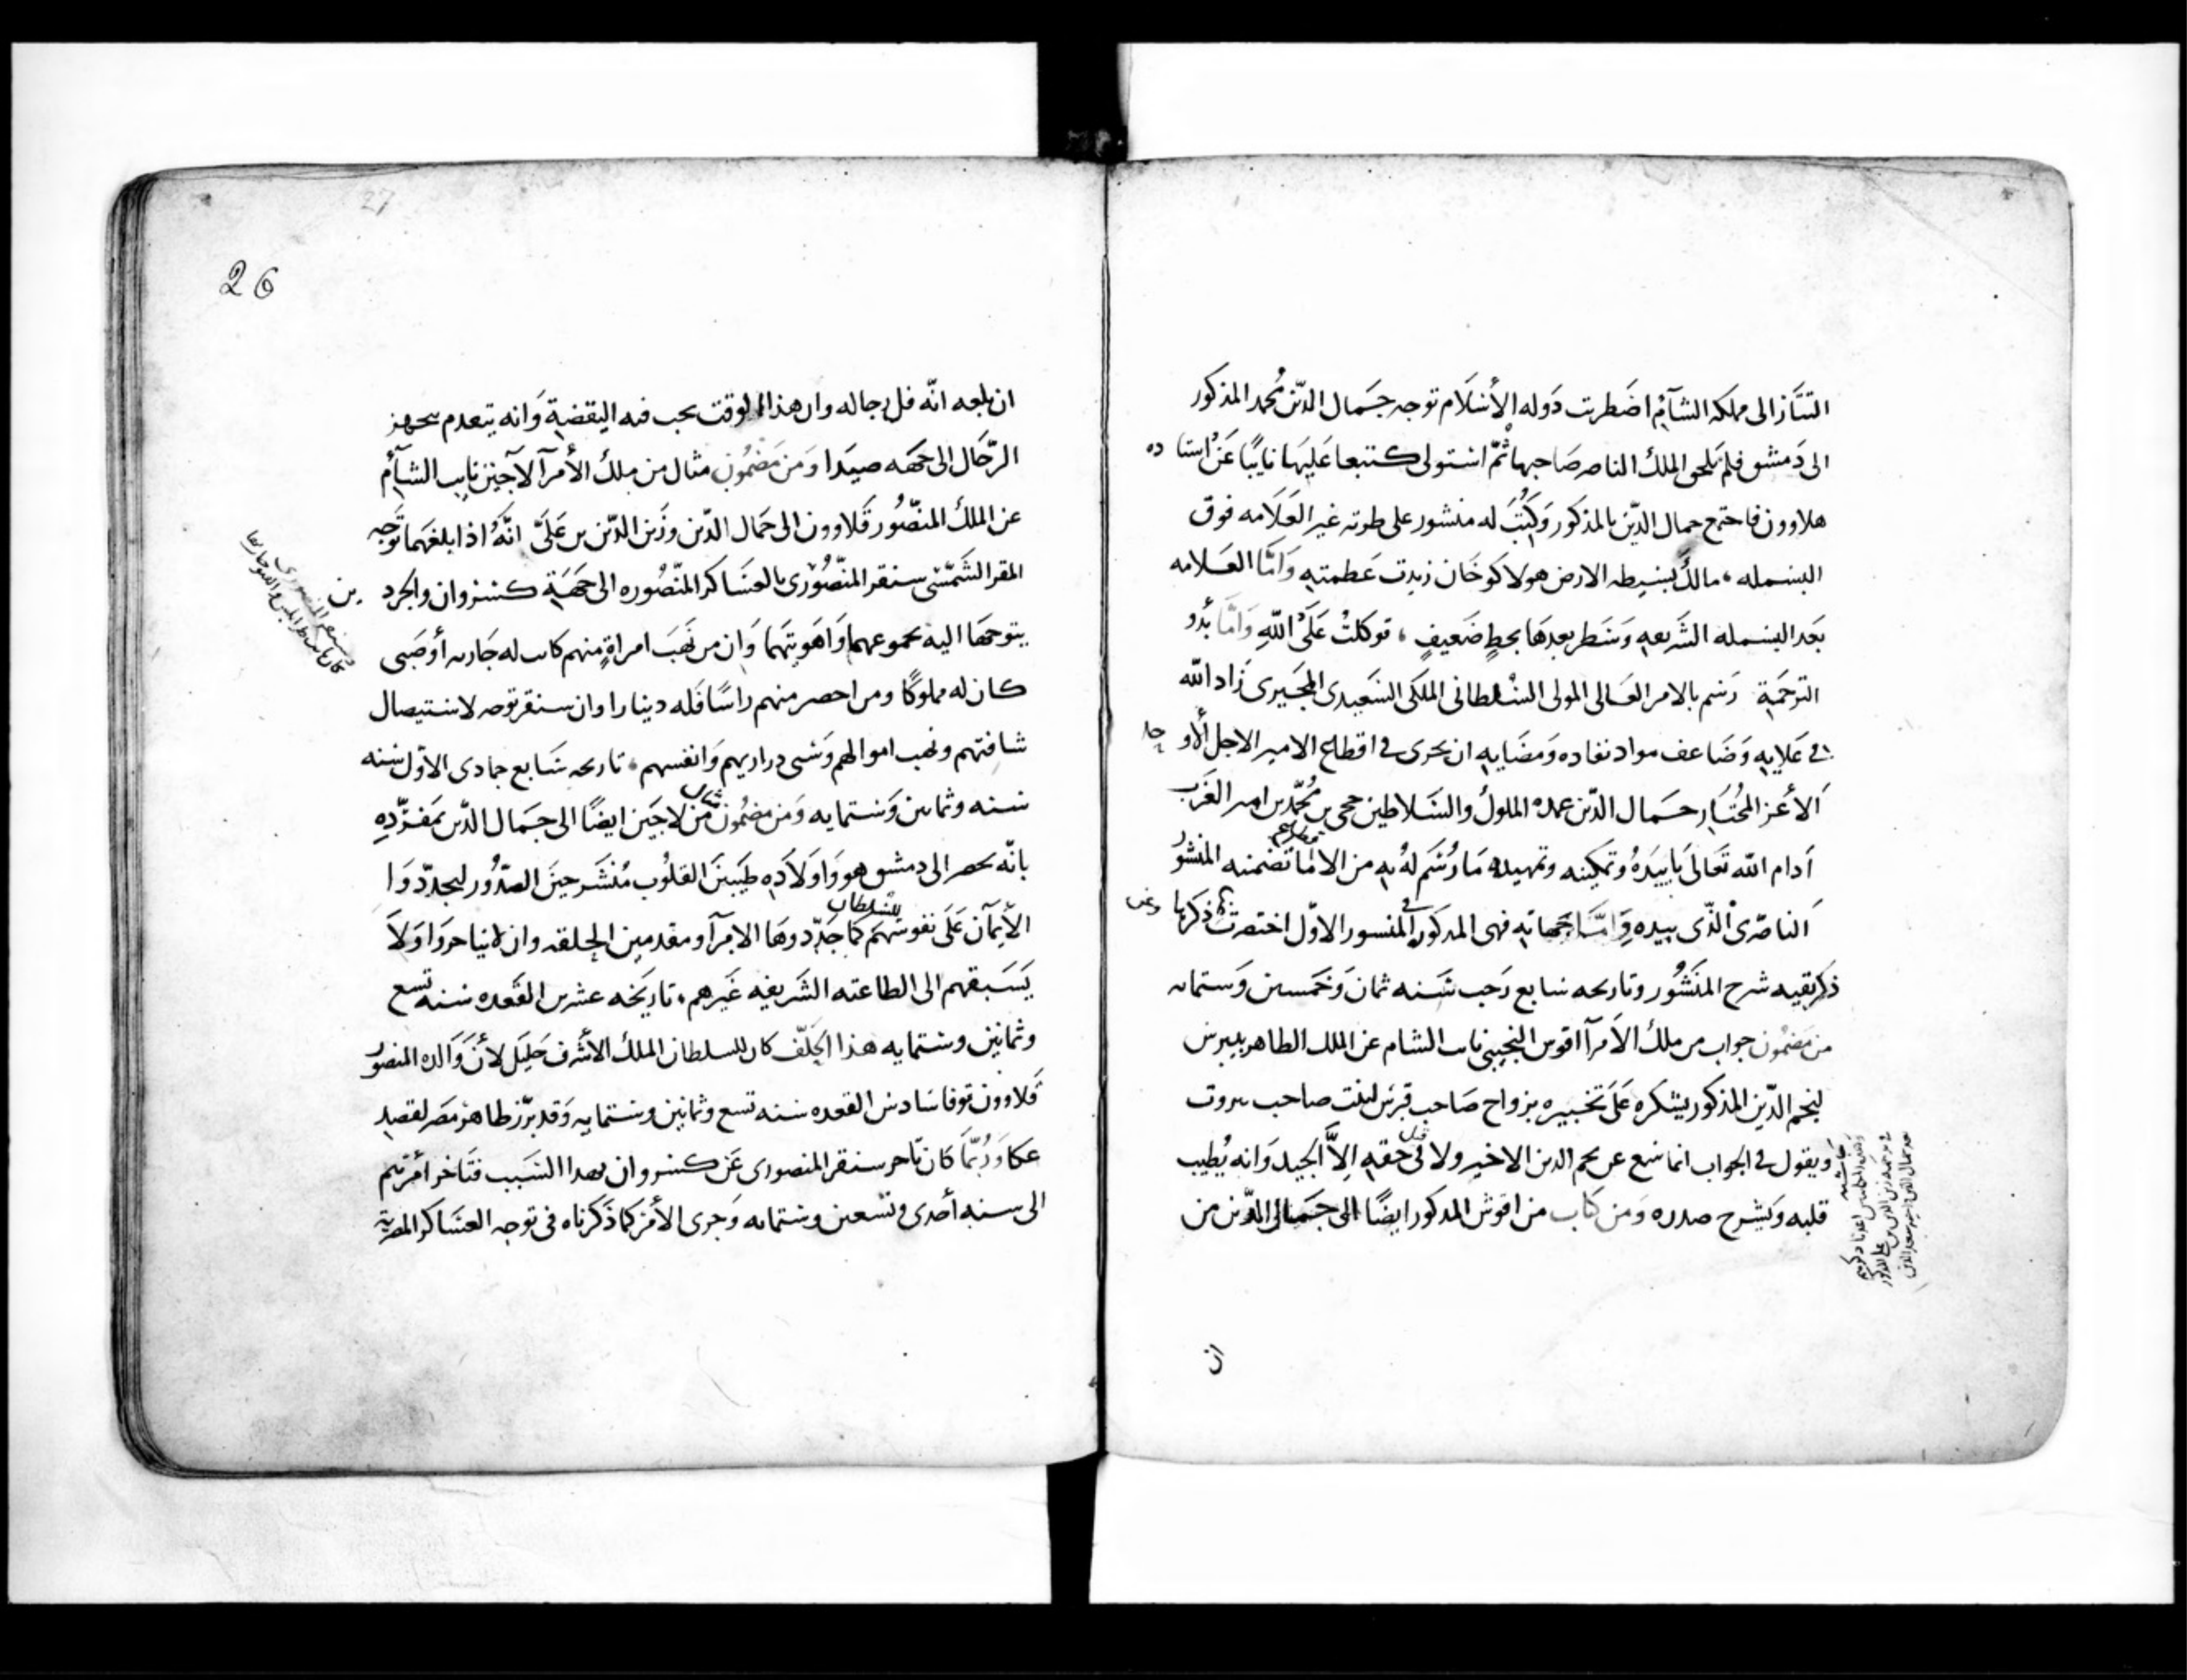 التتار الى مملكه الشآم اضطربت دوله الأسلام توجه جمال الدّين محمد المذكور
الى دمشق فلم يلحق الملك الناصر صاحبها ثمّ استولى كتبغا عليها نايبًا عن استا ده
هلاوون فاجتمع جمال الدّين بالمذكور وكتب له منشور على طرته غير العلامه فوق
البسمله، مالك بسيطه الارض هولاكو خان زيدت عظمته وامّا العلامه
بعد البسمله الشريعه وسطر بعدها بخط ضعيف، توكلت على اللّه وامّا بدُو
الترجمة رسم بالامر العالى المولى السلطانى الملكى السعيدى المجيرى زاد الله
فى علايه وضاعف مواد نفاده ومضايه ان يجرى فى اقطاع الامير الاجل الأو حد
الأعز المختار جمال الدّين عمده الملوك والسلاطين حجى بن محمّد بن امير الغرب
أدام الله تعالى تاييده وتمكينه وتمهيده ما رسم له به من الا لما تضمنه المنشور
الناصرى الّذى بيده وامّا جهاته فهى المدكور فى المنسور الاوّل اختصرت ذكرها
ذكر بقيه شرح المنشور وتاريخه سابع رجب سنه ثمان وخمسين وستمايه
من مضمون جواب من ملك الأمرآ اقوش النجيبى نايب الشام عن الملك الظاهر بيبرس
لنجم الدّين المذكور يشكره على تخبيره بزواج صاحب قبرس لبنت صاحب بيروت
ويقول فى الجواب انما سمع عن نجم الدين الاخير ولا قيل فى حقه إلاّ الجيد وانه يُطيب
قلبه ويشرح صدره ومن كتاب من اقوش المدكور ايضًا الى جمال الدّين من
ان
26
27
ان بلغه انّه فل رجاله وان هذا الوقت يجب فيه اليقضة وانه يتعدم بتجهيز
الرّجال الى جهه صيدا ومن مضمون مثال من ملك الأمرآ لاجين نايب الشآم
عن الملك المنصّور قلاوون الى جمال الدّين وزين الدّين بن علىّ انّه اذا بلغهما توجّه
المقر الشمسّى سنقر المنصّورى بالعساكر المنصّوره الى جهة كسروان والجرد ين
يتوجها اليه بجموعهما واهويتهما وان من نهب امراةٍ منهم كانت له جاريه أو صبى
كان له مملوكًا ومن احضر منهم راسًا فله دينارا وان سنقر توجه لاستيصال
شافتهم ونهب اموالهم وسبى دراريهم وانفسهم، تاريخه سابع جمادى الاوّل سنه
سته وثمانين وستمايه ومن مضمون مثال من لاجين ايضًا الى جمال الدّين بمفردّه
بانّه يحضر الى دمشق هو واولاده طيبين القلوب منشرحين الصّدور ليجدّدوا
الأيمآن على نفوسهم للسلطان كما جدّدوها الامرآ ومقدمين الحلقه وان لا يتاخروا ولا
يسبقهم الى الطاعته الشريفه غيرهم، تاريخه عشرين القعده سنه تسع
وثمانين وستمايه هذا الحلف كان للسلطان الملك الأشرف خليل لأن والده المنصور
قلاوون توفا سادس القعده سنه تسع وثمانين وستمايه وقد برّز ظاهر مصر لقصد
عكا وربّما كان تاخر سنقر المنصورى عن كسروان بهدا السبب فتاخر أمرهم
الى سنه أحدى وتسعين وستمايه وجرى الأمر كما ذكرناه فى توجه العساكر المصرية